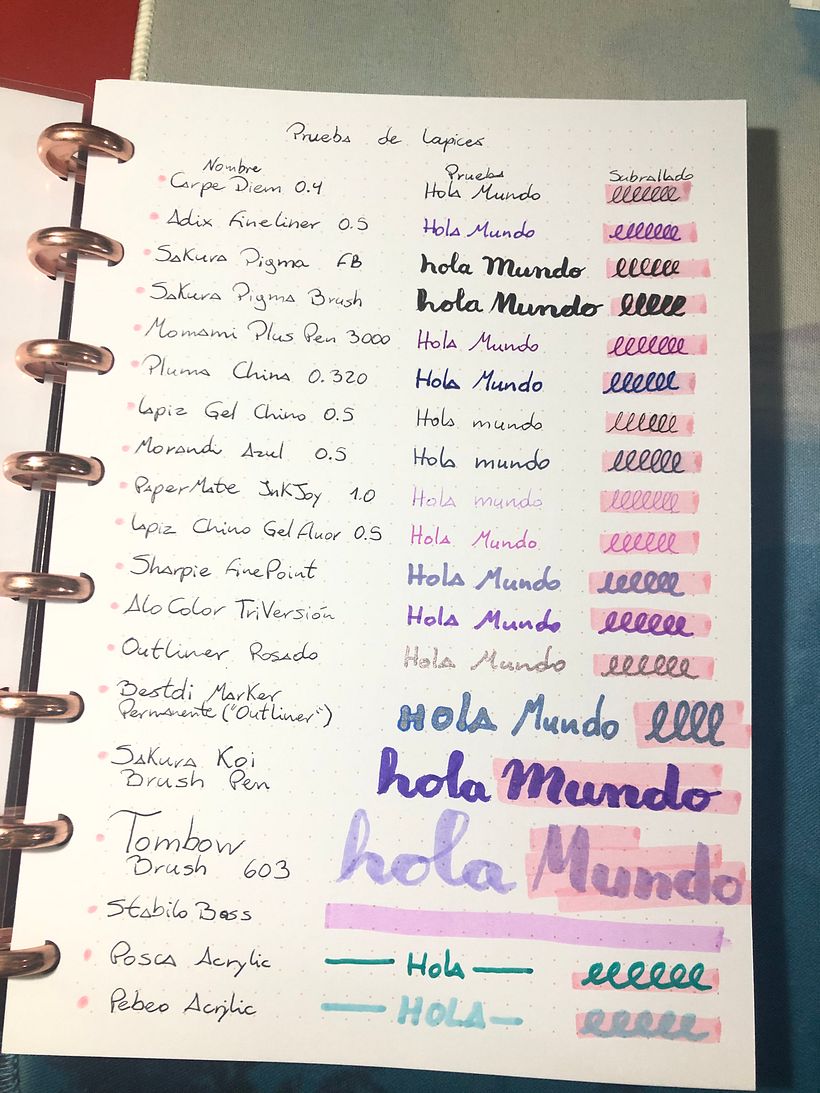 Prueba de Lapices
Nombre Prueba Subrallado
Carpe Diem 0.4 Hola Mundo eeeeeee
Adix Fineliner 0.5 Hola Mundo eeeeeee
Sakura Pigma FB hola Mundo eeeeee
Sakura Pigma Brush hola Mundo eeeee
Momami Plus Pen 3000 Hola Mundo eeeeeee
Pluma China 0.320 Hola Mundo eeeeee
Lapiz Gel Chino 0.5 Hola mundo eeeeee
Morandi Azul 0.5 Hola mundo eeeeeee
PaperMate InkJoy 1.0 Hola mundo eeeeeee
Lapiz Chino Gel fluor 0.5 Hola Mundo eeeeee
Sharpie FinePoint Hola Mundo eeeeee
Alo Color TriVersión Hola Mundo eeeeeee
Outliner Rosado Hola Mundo eeeeeee
Bestdi Marker
Permanente ("Outliner") Hola Mundo llll
Sakura Koi
Brush Pen hola Mundo
Tombow
Brush 603 hola Mundo
Stabilo Boss
Posca Acrylic Hola eeeeee
Pebeo Acrylic HOLA eeeeee